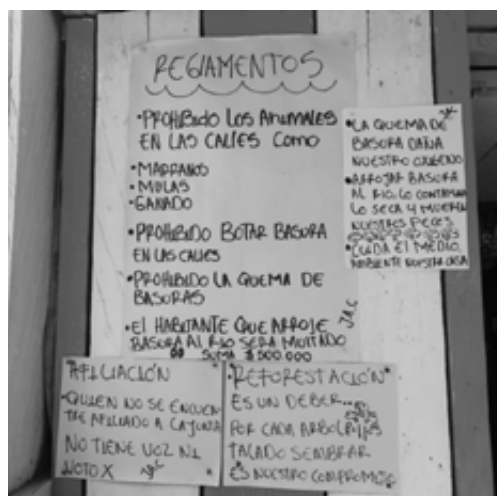 REGLAMENTOS
•PROHIBIDO LOS ANIMALES
EN LAS CALLES COMO
•MARRANOS
•MULAS
•GANADO
•PROHIBIDO BOTAR BASURA
EN LAS CALLES
•PROHIBIDO LA QUEMA DE
BASURAS
•El HABITANTE QUE ARROJE
BASURA AL RIO SERA MULTADO
SUMA $500.000
J.A.C
•LA QUEMA DE
BASURA DAÑA
NUESTRO OXIGENO
•ARROJAR BASURA
AL RIO, LO CONTAMINA
LO SECA Y MUEREN
NUESTROS PECES
•CUIDA EL MEDIO
AMBIENTE NUESTRA CASA
AFILIACIÓN
•QUIEN NO SE ENCUEN
TRE AFILIADO A LA JUNTA
NO TIENE VOZ NI
VOTO X
•REFORESTACIÓN•
ES UN DEBER...
POR CADA ARBOL
TALADO SEMBRAR
ES NUESTRO COMPROMISO